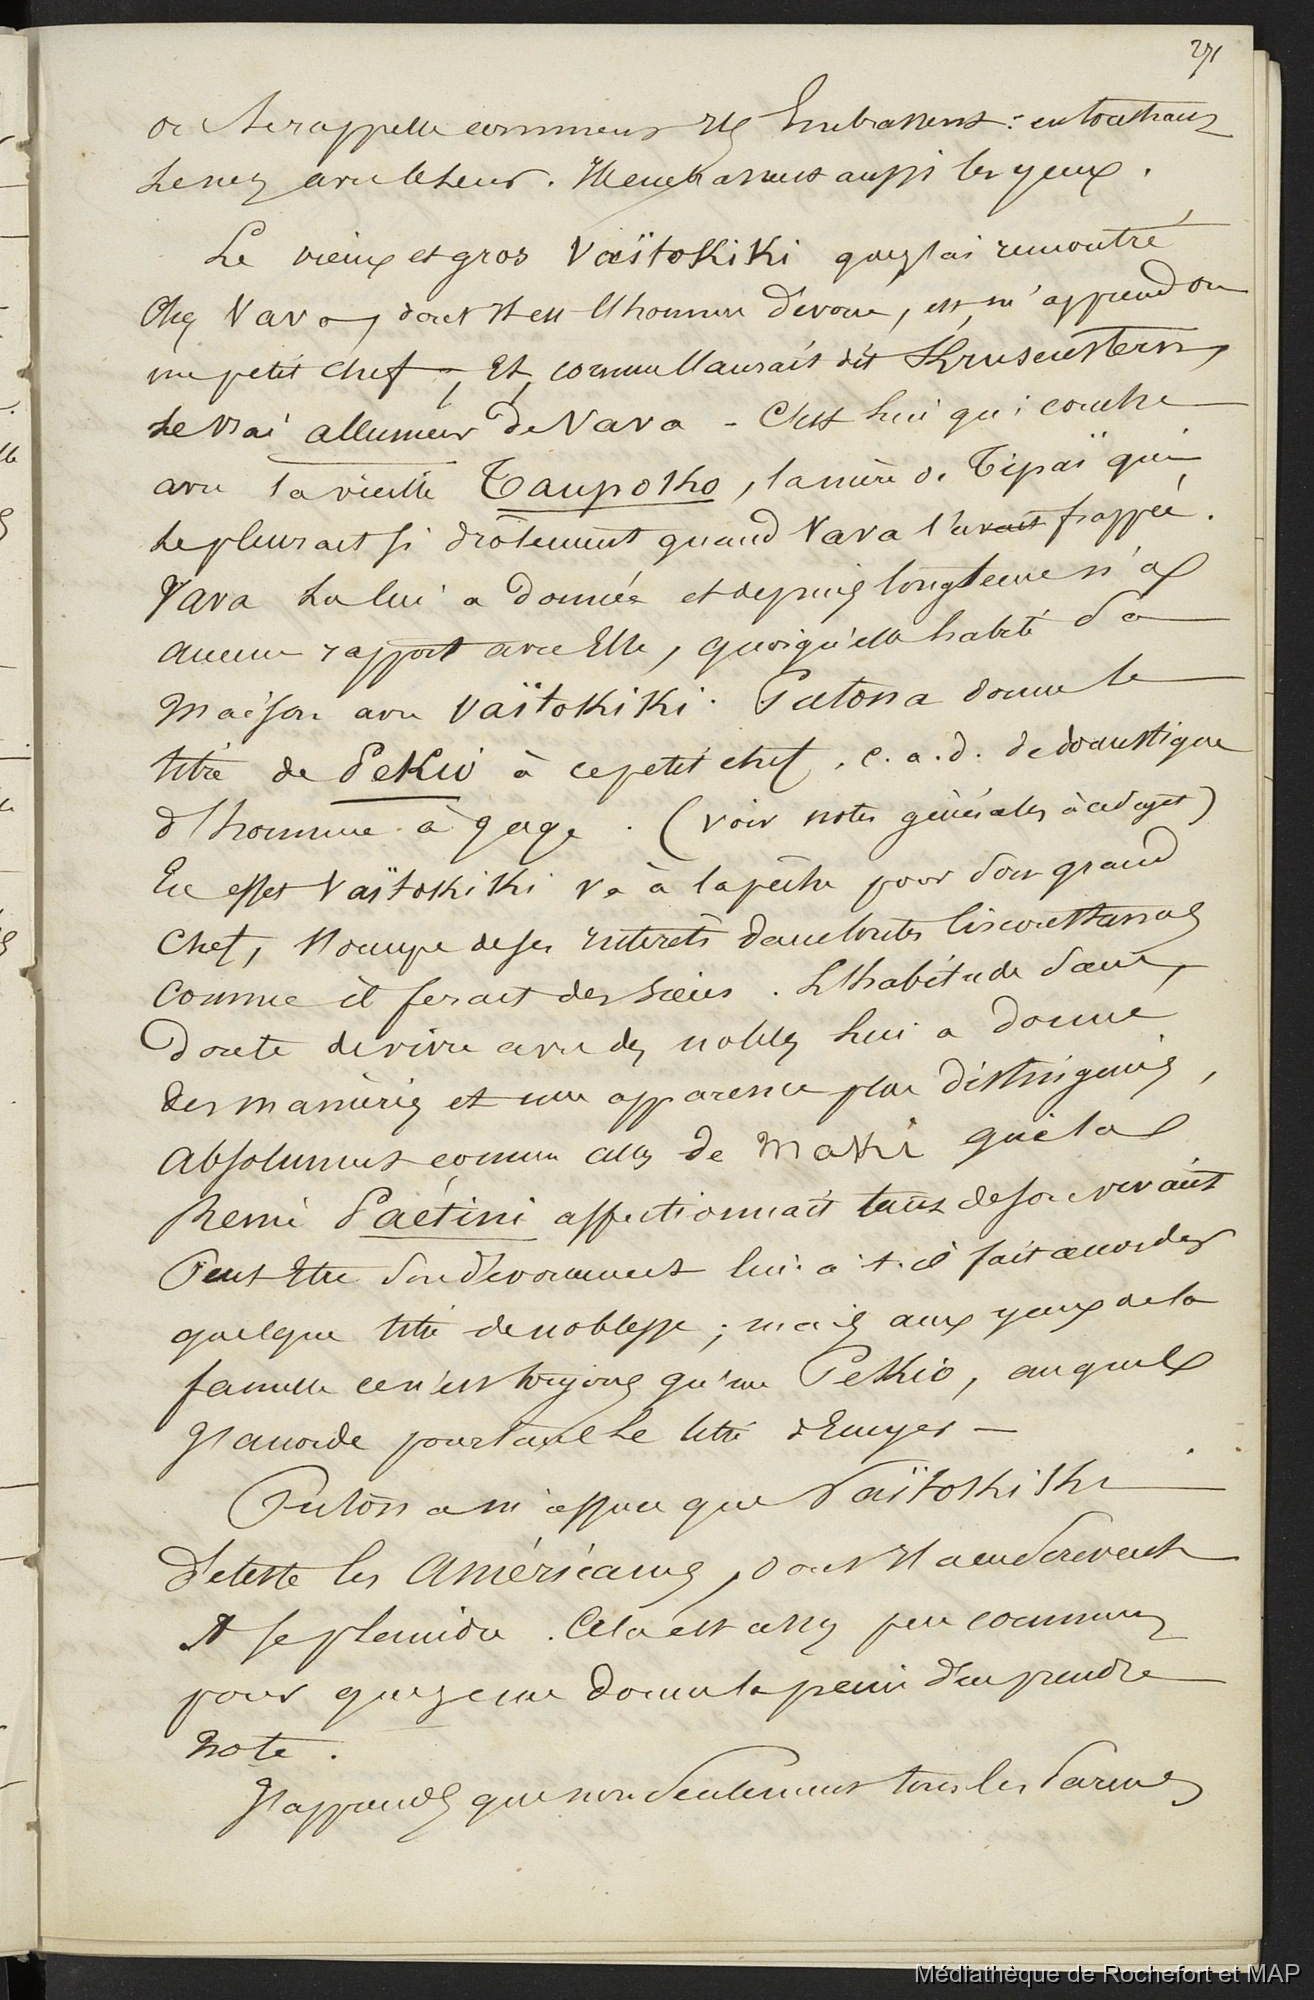 271
on se rappelle comment ils s'embrassent : en touchant
le nez avec le leur. Ils embrassent aussi les yeux.
Le vieux et gros Vaïtokiki que j'ai rencontré
chez Vava, dont il est l'homme dévoué, est, m'apprend on
un petit chef, Et, comme l'aurait dit Krusenstern,
le vrai allumeur de Vava - C'est lui qui couche
avec la vieille Taupotho, la mère de Tipaï qui
le pleurait si drôlement quand Vava l'avait frappée.
Vava la lui a donnée et depuis longtems n'a
aucun rapport avec Elle, quoiqu'elle habite sa
maison avec Vaïtokiki. Putona donne le
titre de Pekio à ce petit chef, c. a. d. de domestique
d'homme à gage. (voir notes générales à ce sujet)
En effet Vaïtokiki va à la pêche pour son grand
chef, s'occupe de ses intérêts dans toutes circonstances
comme il ferait des siens. L'habitude sans
doute de vivre avec des nobles lui a donné
des manières et une apparence plus distinguées,
absolument comme celles de Maki que la
Reine Paétini affectionnait tant de son vivant
Peut Etre son dévouement lui a-t-il fait accorder
quelque titre de noblesse ; mais aux yeux de la
famille ce n'est toujours qu'un Pekio, auquel
J'accorde pourtant le titre d'Ecuyer -
Putona m'assure que Vaïtokiki
déteste les Américains, dont il a eu souvent
à se plaindre. Cela est assez peu commun
pour que je me donne la peine d'en prendre
note.
J'apprends que non seulement tous les
Médiathèque de Rochefort et MAP